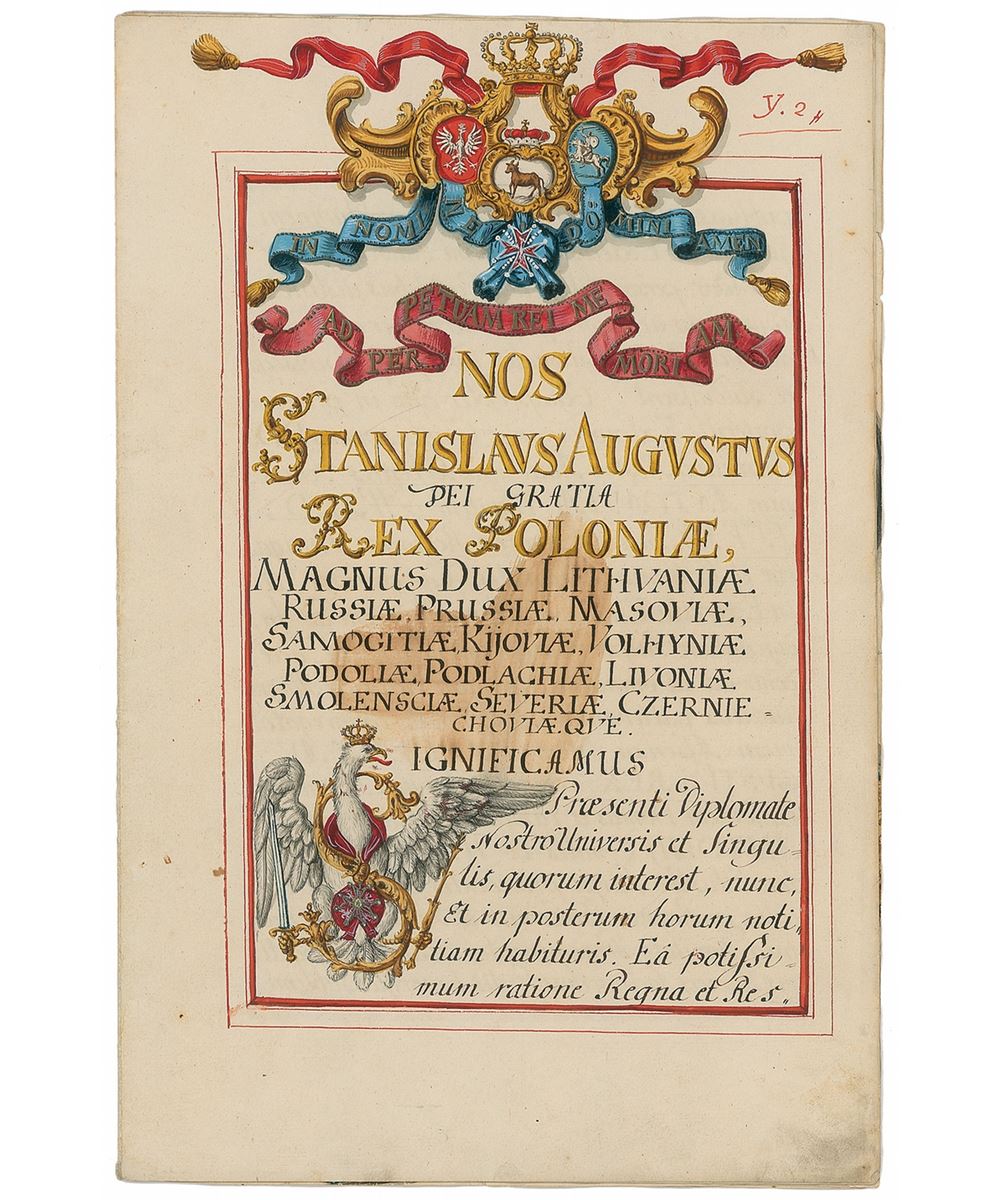 Y. 2
IN NOMINE DOMINI AMEN
AD PERPETUAM REI MEMORIAM
NOS
STANISLAVS AUGVSTVS
DEI GRATIA
REX POLONIÆ,
MAGNUS DUX LITHVANIÆ
RUSSIÆ, PRUSSIÆ, MASOVIÆ,
SAMOGITIÆ, KIJOVIÆ, VOLHYNIÆ
PODOLIÆ, PODLACHIÆ, LIVONIÆ
SMOLENSCIÆ, SEVERIÆ, CZERNIE=
CHOVIÆ.QVE.
SIGNIFICAMUS
Præsenti Diplomate
Nostro Universis et Singu-
lis, quorum interest, nunc,
Et in posterum horum noti,,
tiam habituris. Eâ potiſſi-
mum ratione Regna et Res,,